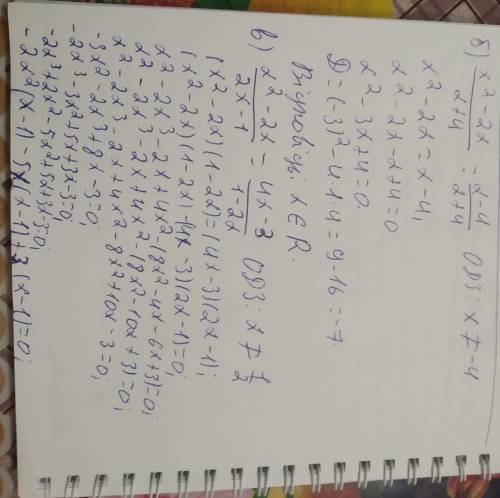 б) x² - 2x / x+4 = x-4 / x+4 ОДЗ: x ≠ -4.
x² - 2x = x - 4;
x² - 2x - x + 4 = 0
x² - 3x + 4 = 0.
D = (-3)² - 4·1·4 = 9 - 16 = -7.
Відповідь: x ∈ R.
в) x² - 2x / 2x - 1 = 4x - 3 / 1 - 2x ОДЗ: x ≠ 1/2
(x² - 2x)(1 - 2x) = (4x - 3)(2x - 1);
(x² - 2x)(1 - 2x) - (4x - 3)(2x - 1) = 0;
x² - 2x³ - 2x + 4x² - (8x² - 4x - 6x + 3) = 0;
x² - 2x³ - 2x + 4x² - (8x² - 10x + 3) = 0;
x² - 2x³ - 2x + 4x² - 8x² + 10x - 3 = 0;
-3x² - 2x³ + 8x - 3 = 0;
-2x³ - 3x² + 5x + 3x - 3 = 0;
-2x³ + 2x² - 5x² + 5x + 3x - 3 = 0;
-2x²(x - 1) - 5x(x - 1) + 3(x - 1) = 0;